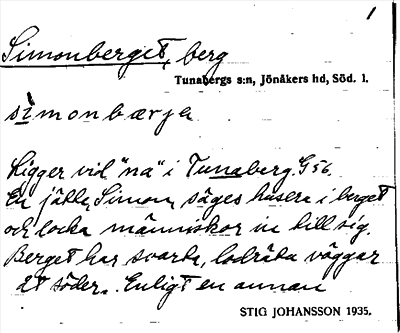 1
Simonberget, berg
Tunabergs s:n, Jönåkers hd, Söd. l.
simonbærje
Ligger vid "na" i Tunaberg. G 56.
En jätte, Simon, säges husera i berget
och locka människor in till sig.
Berget har svarta, lodräta väggar
åt söder. Enligt en annan
STIG JOHANSSON 1935.